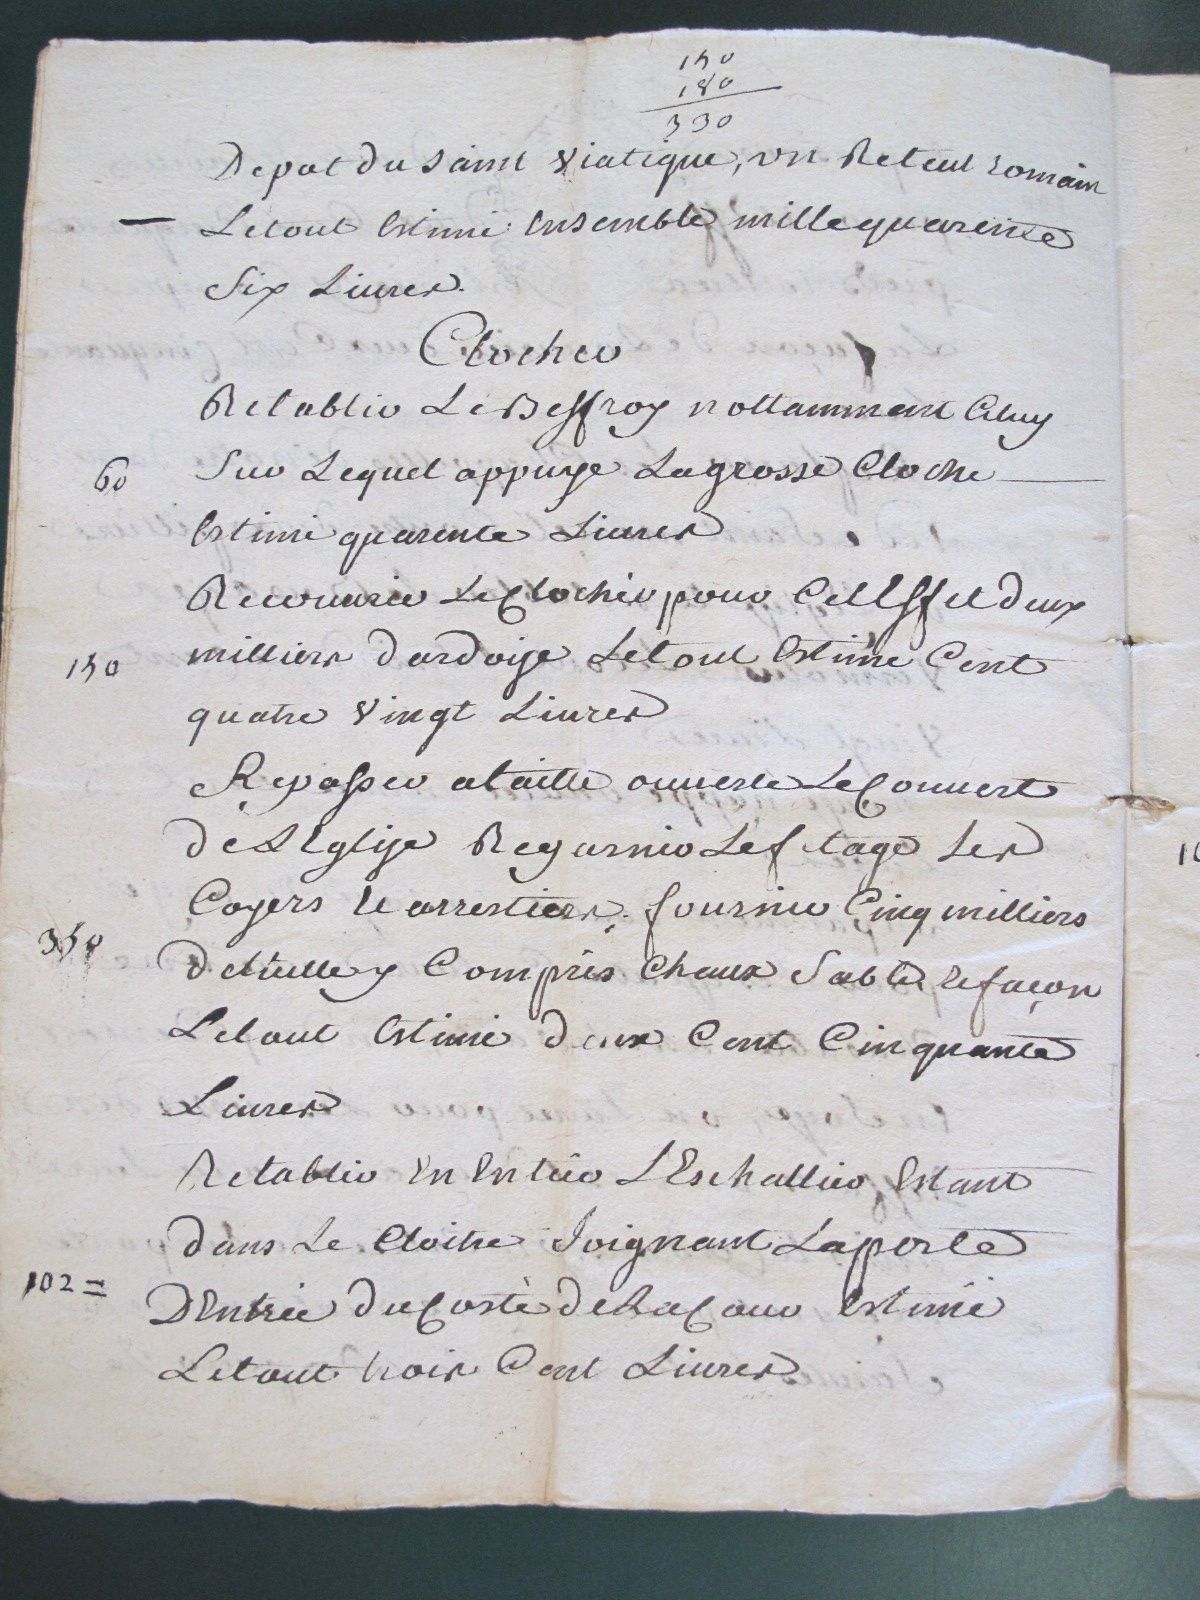 150
180
330
Depot du Saint Viatique, un Reteul romain
— Letout Estimé Ensemble mille quarente
Six Livres.
Clocher
Retablir Le Beffroy nottamment Celuy
60 Sur Lequel appuye La grosse Cloche
Estimé quarente Livres
Recouvrir Le Clocher pour Cet Effet deux
150 milliers dardoise Letout Estimé Cent
quatre Vingt Livres
Repasser a taille ouverte Le Couvert
de LEglise Regarnir Lefetage Les
Coyers Les arrestiers. fournir Cinq milliers
350 de tuille y Compris Chaux Sable et façon
Letout Estimé deux Cent Cinquante
Livres
Retablir En Entier LEschallier Estant
dans Le Cloitre Joignant La porte
102 = DEntrée du Costé de La Cour Estimé
Letout trois Cent Livres